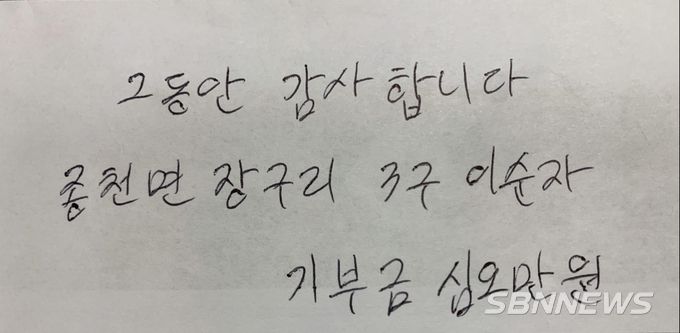 그동안 감사합니다
종천면 장구리 3구 이순자
기부금 십오만원
SBNNEWS